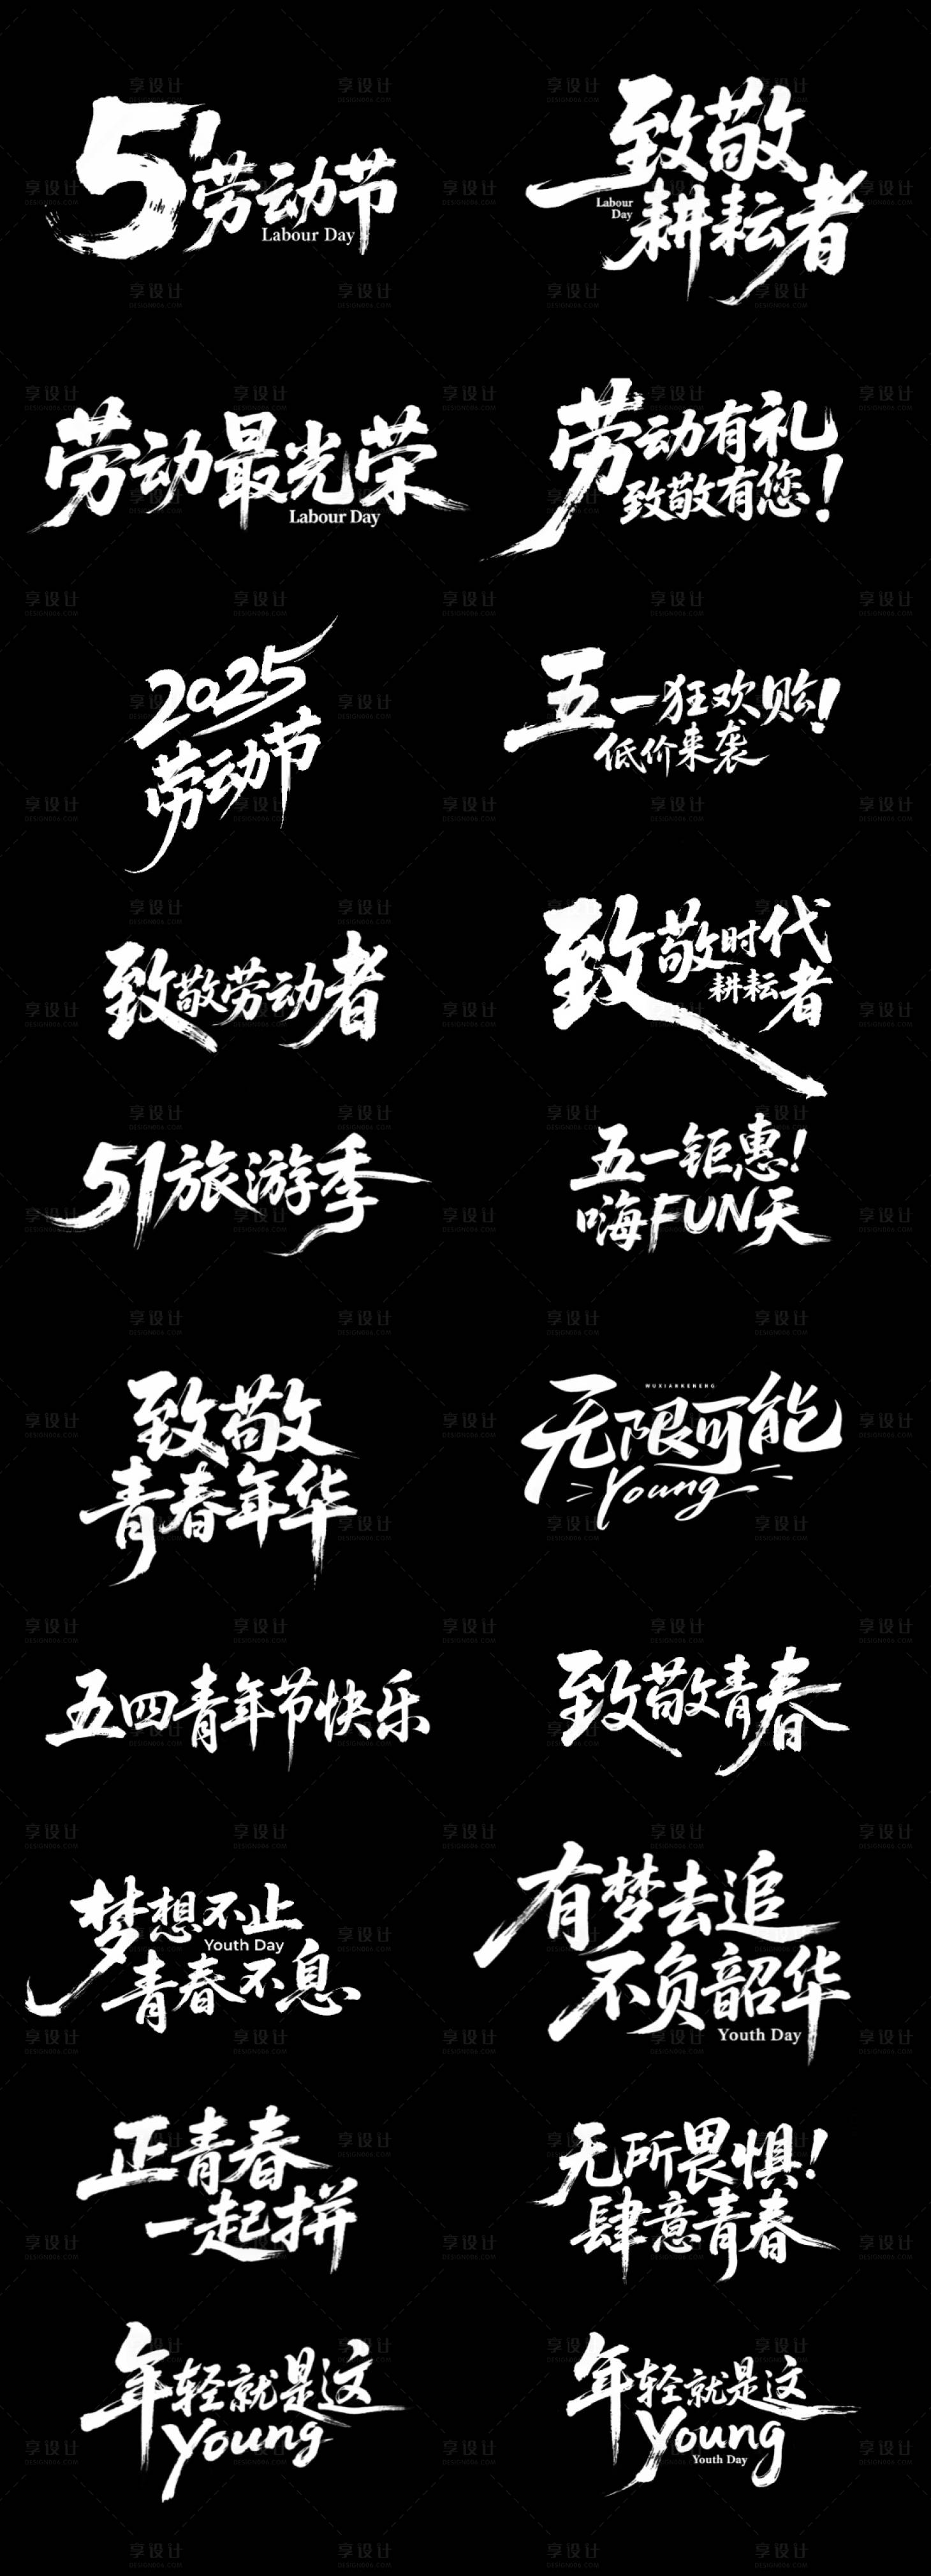 51劳动节
Labour Day
致敬
Labour
Day
耕耘者
劳动最光荣
Labour Day
劳动有礼
致敬有您!
2025
劳动节
五一狂欢购!
低价来袭
致敬劳动者
致敬时代
耕耘者
51旅游季
五一钜惠!
嗨FUN天
致敬
青春年华
WUXIANKENENG
无限可能
Young
五四青年节快乐
致敬青春
梦想不止
Youth Day
青春不息
有梦去追
不负韶华
Youth Day
正青春
一起拼
无所畏惧!
肆意青春
年轻就是这
Young
年轻就是这
Young
Youth Day
享设计
DESIGN006.COM